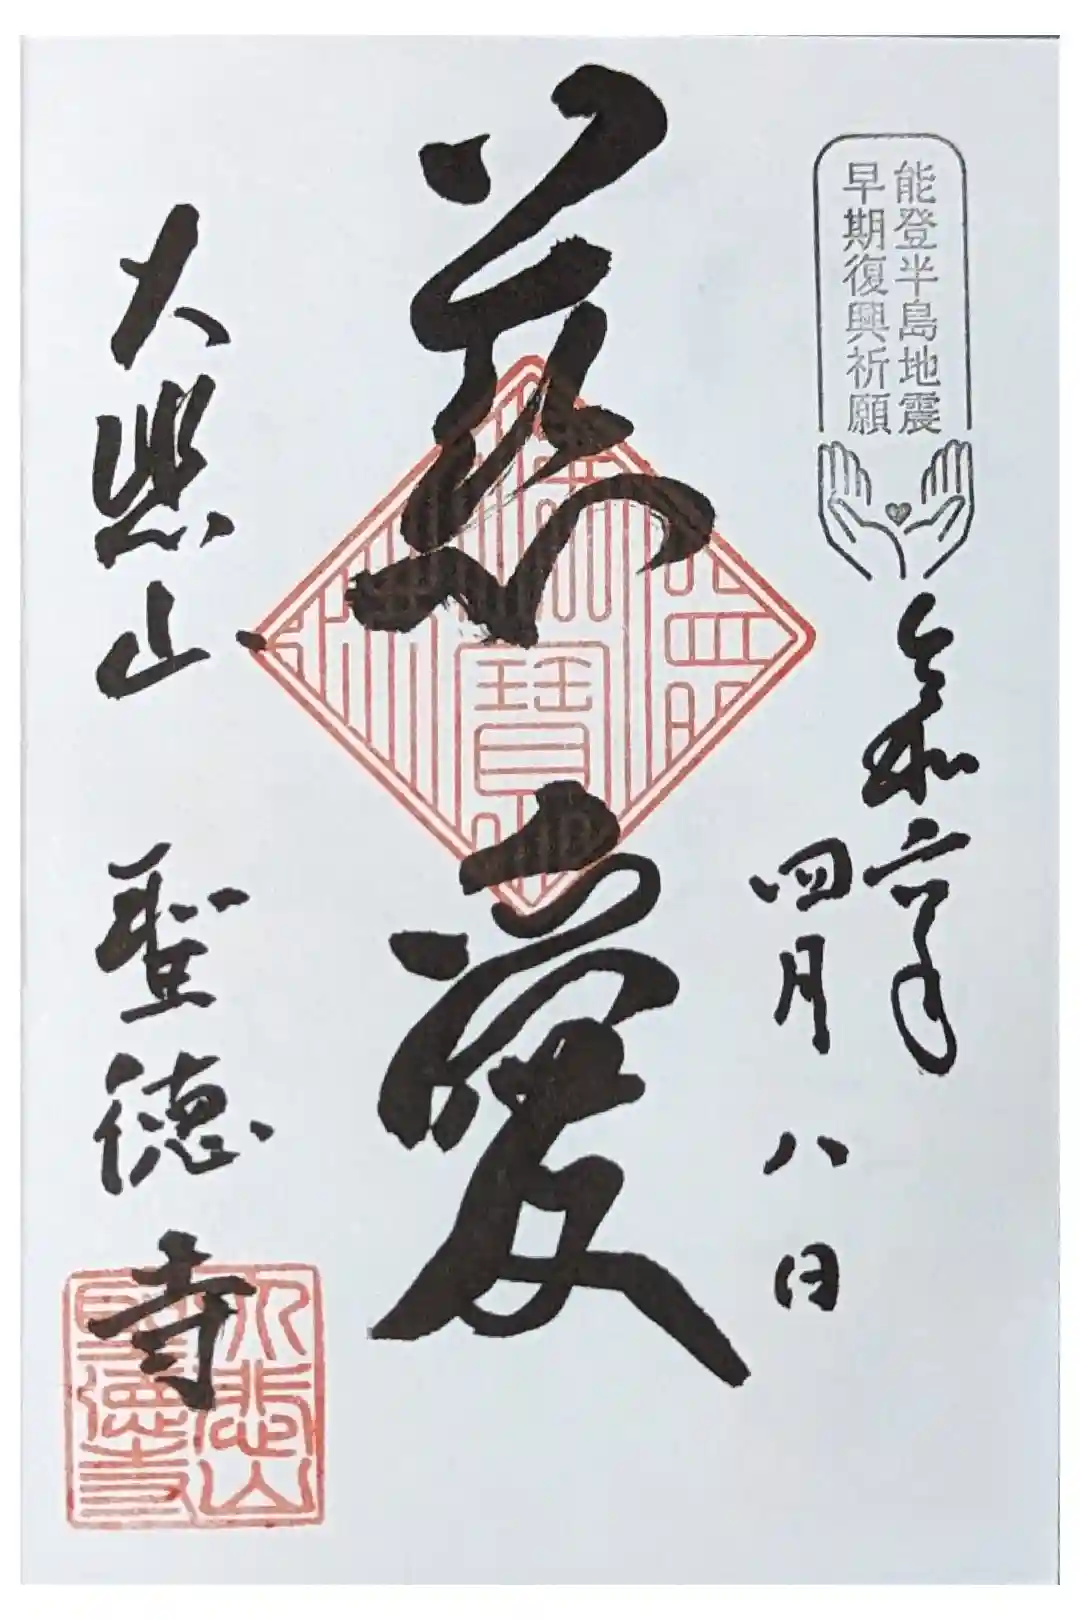 能登半島地震
早期復興祈願
令和六年
四月八日
慈愛
寶
大悲山 聖徳寺
大悲山
聖徳寺